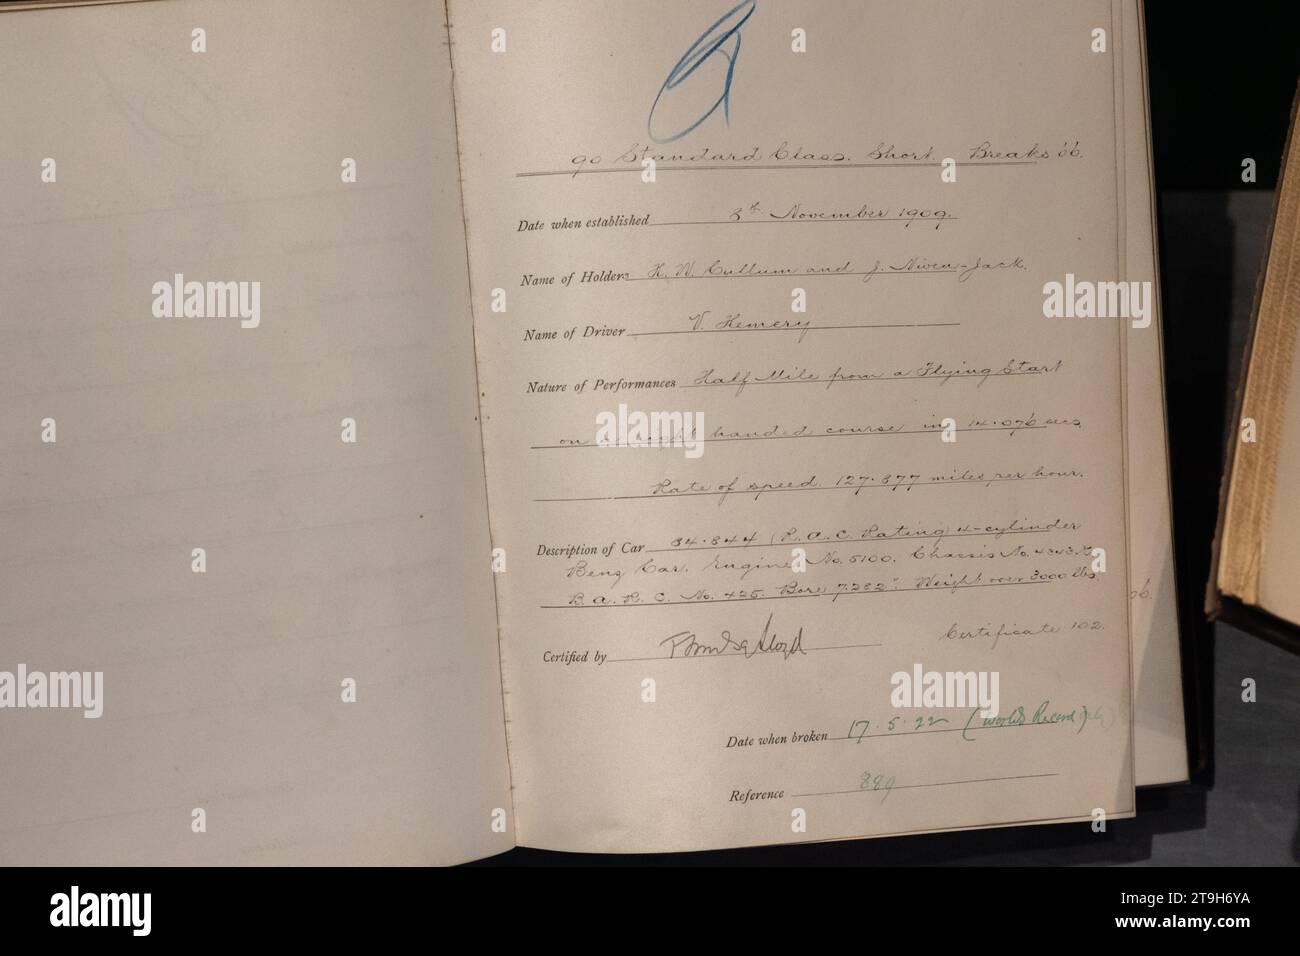 90 Standard Class. Short. Breaks 66.
Date when established 8th November 1909.
Name of Holders H. W. Cullum and J. Niven-Jack.
Name of Driver V. Hemery
Nature of Performances Half Mile from a Flying Start
on a right handed course in 14.076 secs
Rate of speed. 127.877 miles per hour.
Description of Car 84.844 (R.A.C. Rating) 4-cylinder
Benz Car. Engine No. 5100. Chassis No.
B.A.R.C. No. 425. Bore 7.282". Weight over 3000 lbs.
Certificate 102.
Certified by
Date when broken 17.5.22 (World's Record only)
Reference 889
66.
alamy
alamy
Image ID: 2T9H6YA
www.alamy.com